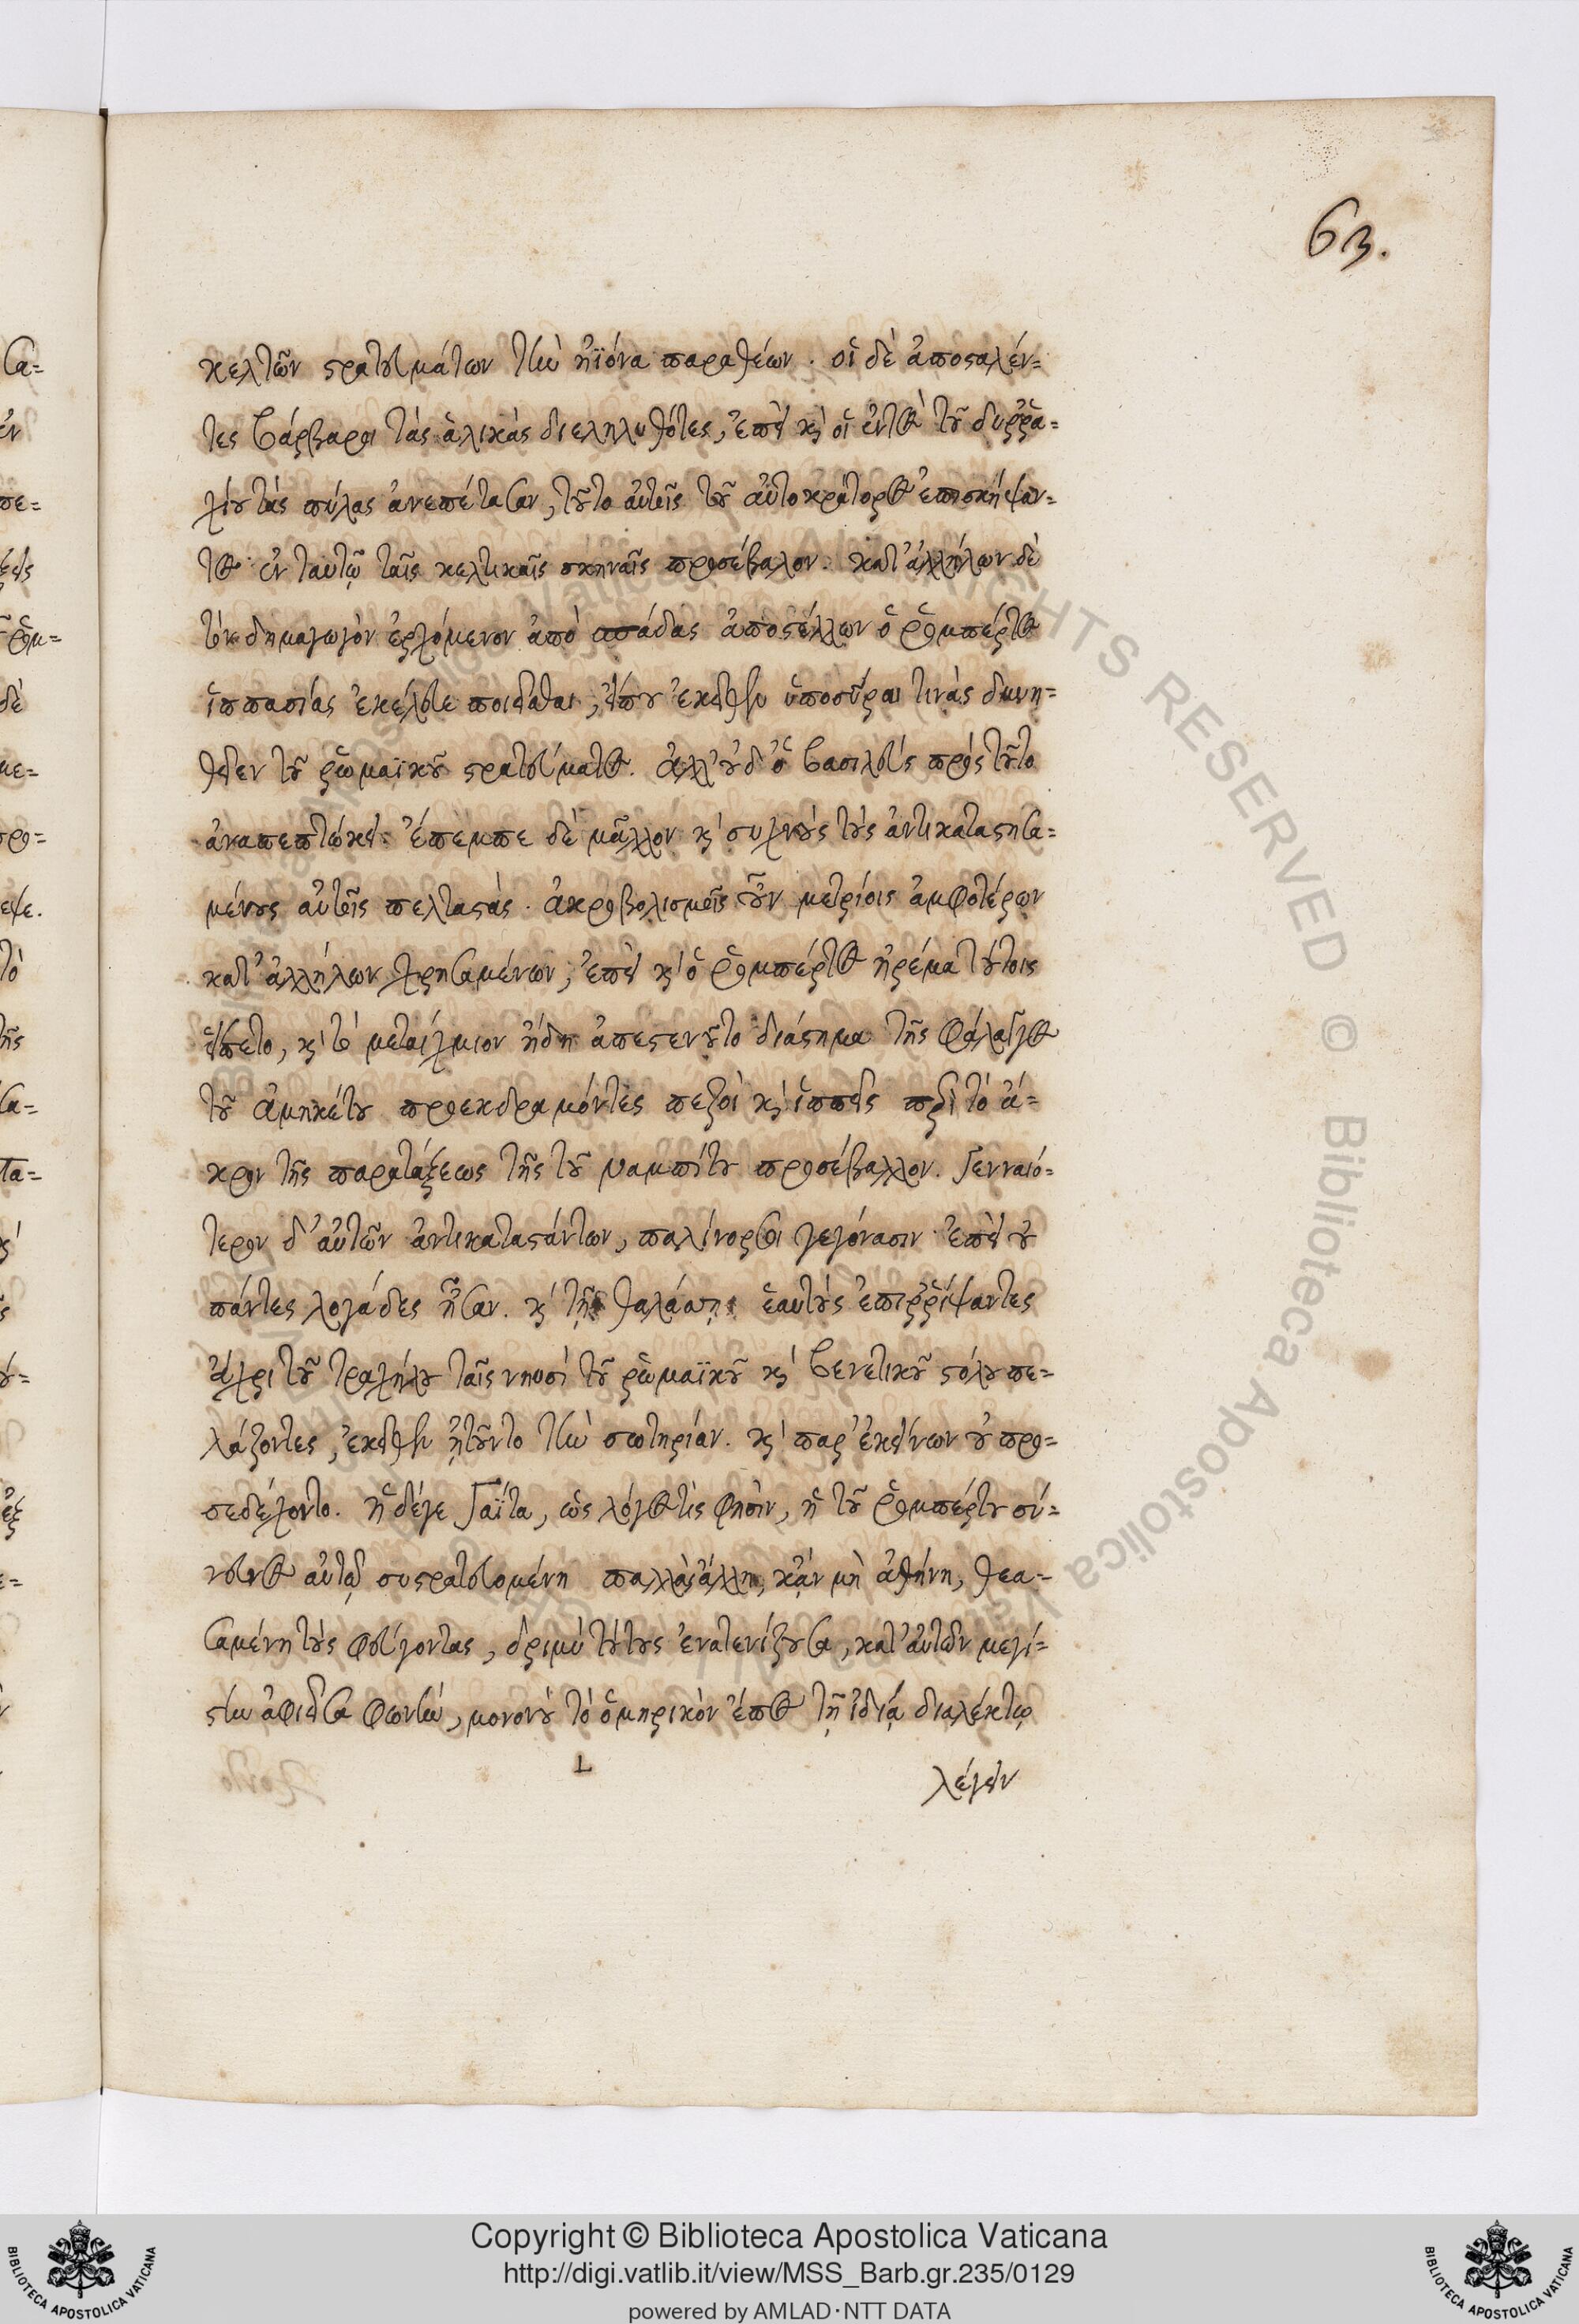 63.
κελτῶν στρατευμάτων τὴν ἠϊόνα παραθέων. οἱ δὲ ἀποσταλέν=
τες βάρβαροι τὰς ἁλικὰς διεληλυθότες, ἐπεὶ καὶ οἱ ἐντὸς τοῦ δυῤῥα=
χίου τὰς πύλας ἀνεπέτασαν, τοῦτο αὐτοῖς τοῦ αὐτοκράτορος ἐπισκήψαν=
τος ἐν ταυτῷ ταῖς κελτικαῖς σκηναῖς προσέβαλον. κατ' ἀλλήλων δὲ
τὸν δημαγωγὸν ἐρχόμενον ἀπὸ σπάδας ἀποστέλλων ὁ ῥομπέρτος
ἱππασίας ἐκέλευε ποιεῖσθαι, εἴπου ἐκεῖθεν ὑποσῦραι τινὰς δυνη=
θεῖεν τοῦ ῥωμαϊκοῦ στρατεύματος. ἀλλ' οὐδ' ὁ βασιλεὺς πρὸς τοῦτο
ἀναπεπτώκει. ἔπεμπε δὲ μᾶλλον καὶ συχνοὺς τοὺς ἀντικαταστησα=
μένους αὐτοῖς πελταστάς. ἀκροβολισμοῖς οὖν μετρίοις ἀμφοτέρων
κατ' ἀλλήλων χρησαμένων, ἐπεὶ καὶ ὁ ῥομπέρτος ἠρέμα τούτοις
εἵπετο, καὶ τὸ μεταίχμιον ἤδη ἀπεστενοῦτο διάστημα τῆς φάλαγγος
τοῦ ἀμηκέτου προεκδραμόντες πεζοὶ καὶ ἱππεῖς περὶ τὸ ἄ=
κρον τῆς παρατάξεως τῆς τοῦ ναμπίτου προσέβαλλον. Γενναιό=
τερον δ' αὐτῶν ἀντικαταστάντων, παλίνορσοι γεγόνασιν ἐπεὶ οὐ
πάντες λογάδες ἦσαν. καὶ τῇ θαλάσσῃ ἑαυτοὺς ἐπιῤῥίψαντες
ἄχρι τοῦ τραχήλου ταῖς νηυσὶ τοῦ ῥωμαϊκοῦ καὶ βενετικοῦ στόλου πε=
λάζοντες, ἐκεῖθεν ᾐτοῦντο τὴν σωτηρίαν. καὶ παρ' ἐκείνων οὐ προ=
σεδέχοντο. ἡ δέγε Γαΐτα, ὡς λόγος τίς φησὶν, ἡ τοῦ ῥομπέρτου σύ=
νευνος αὐτῷ συστρατευομένη παλλὰς ἄλλη, κᾂν μὴ ἀθήνη, θεα=
σαμένη τοὺς φεύγοντας, δριμὺ τούτους ἐνατενίζουσα, κατ' αὐτῶν μεγί=
στην ἀφιεῖσα φωνὴν, μονονοὺ τὸ ὁμηρικὸν ἔπος τῇ ἰδίᾳ διαλέκτῳ
L λέγειν
Copyright © Biblioteca Apostolica Vaticana
http://digi.vatlib.it/view/MSS_Barb.gr.235/0129
powered by AMLAD·NTT DATA